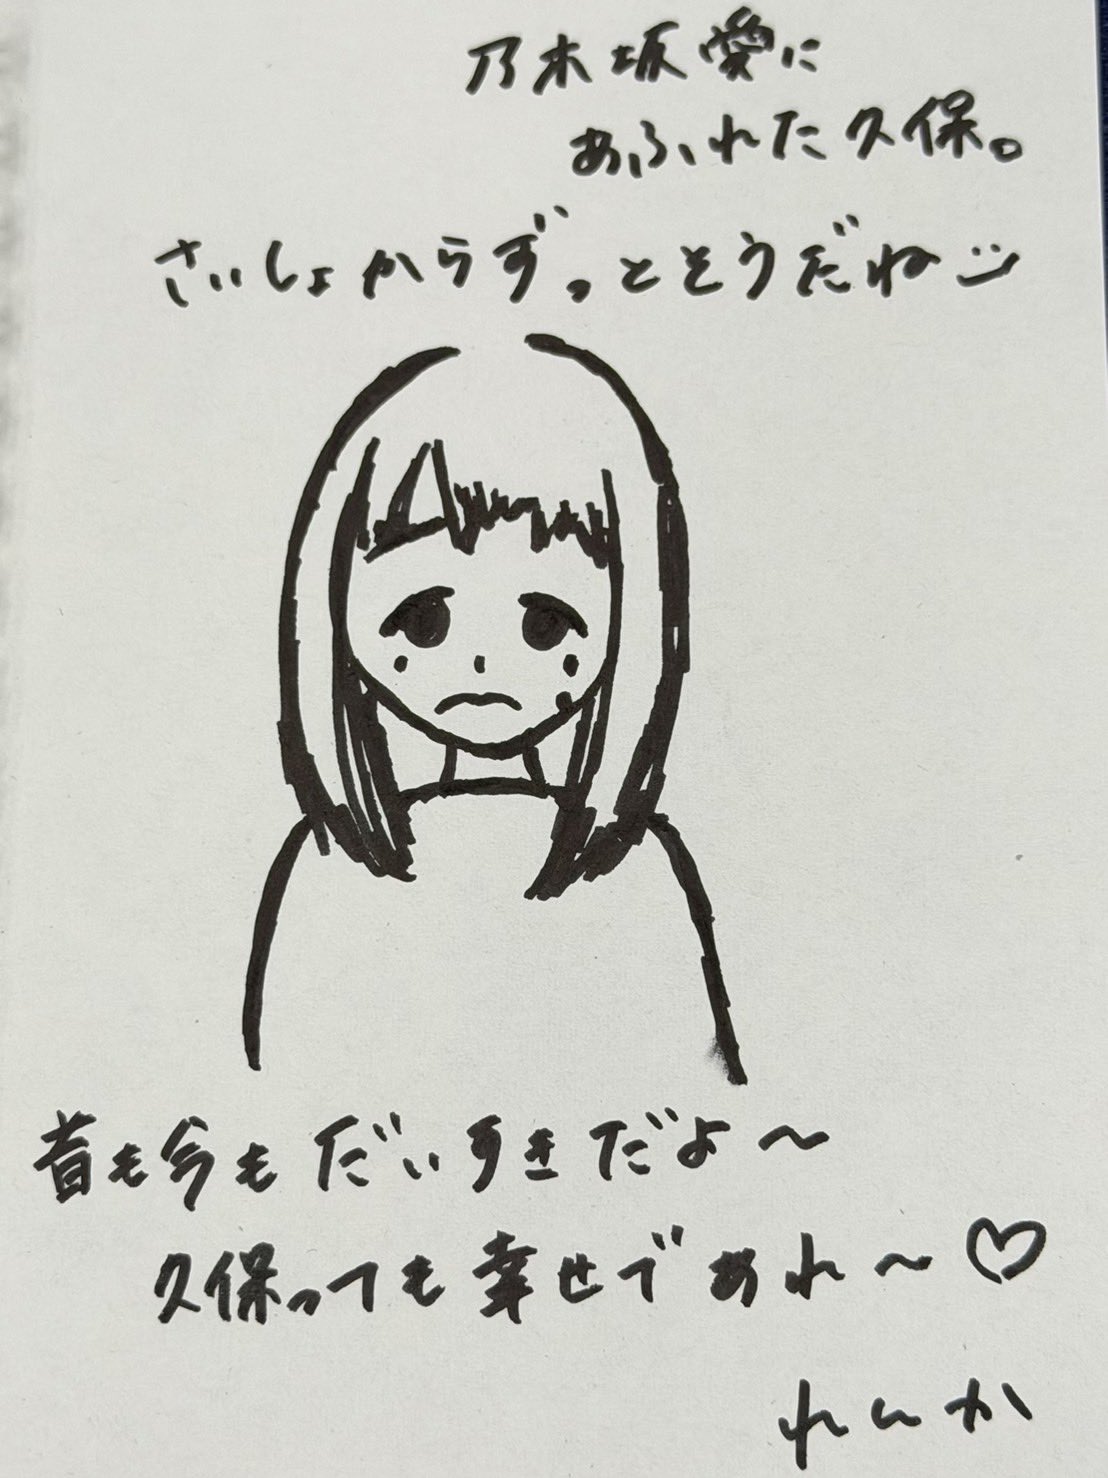 乃木坂愛に
あふれた久保。
さいしょからずっとそうだね
昔も今もだいすきだよ〜
久保っても幸せであれ〜♡
れんか